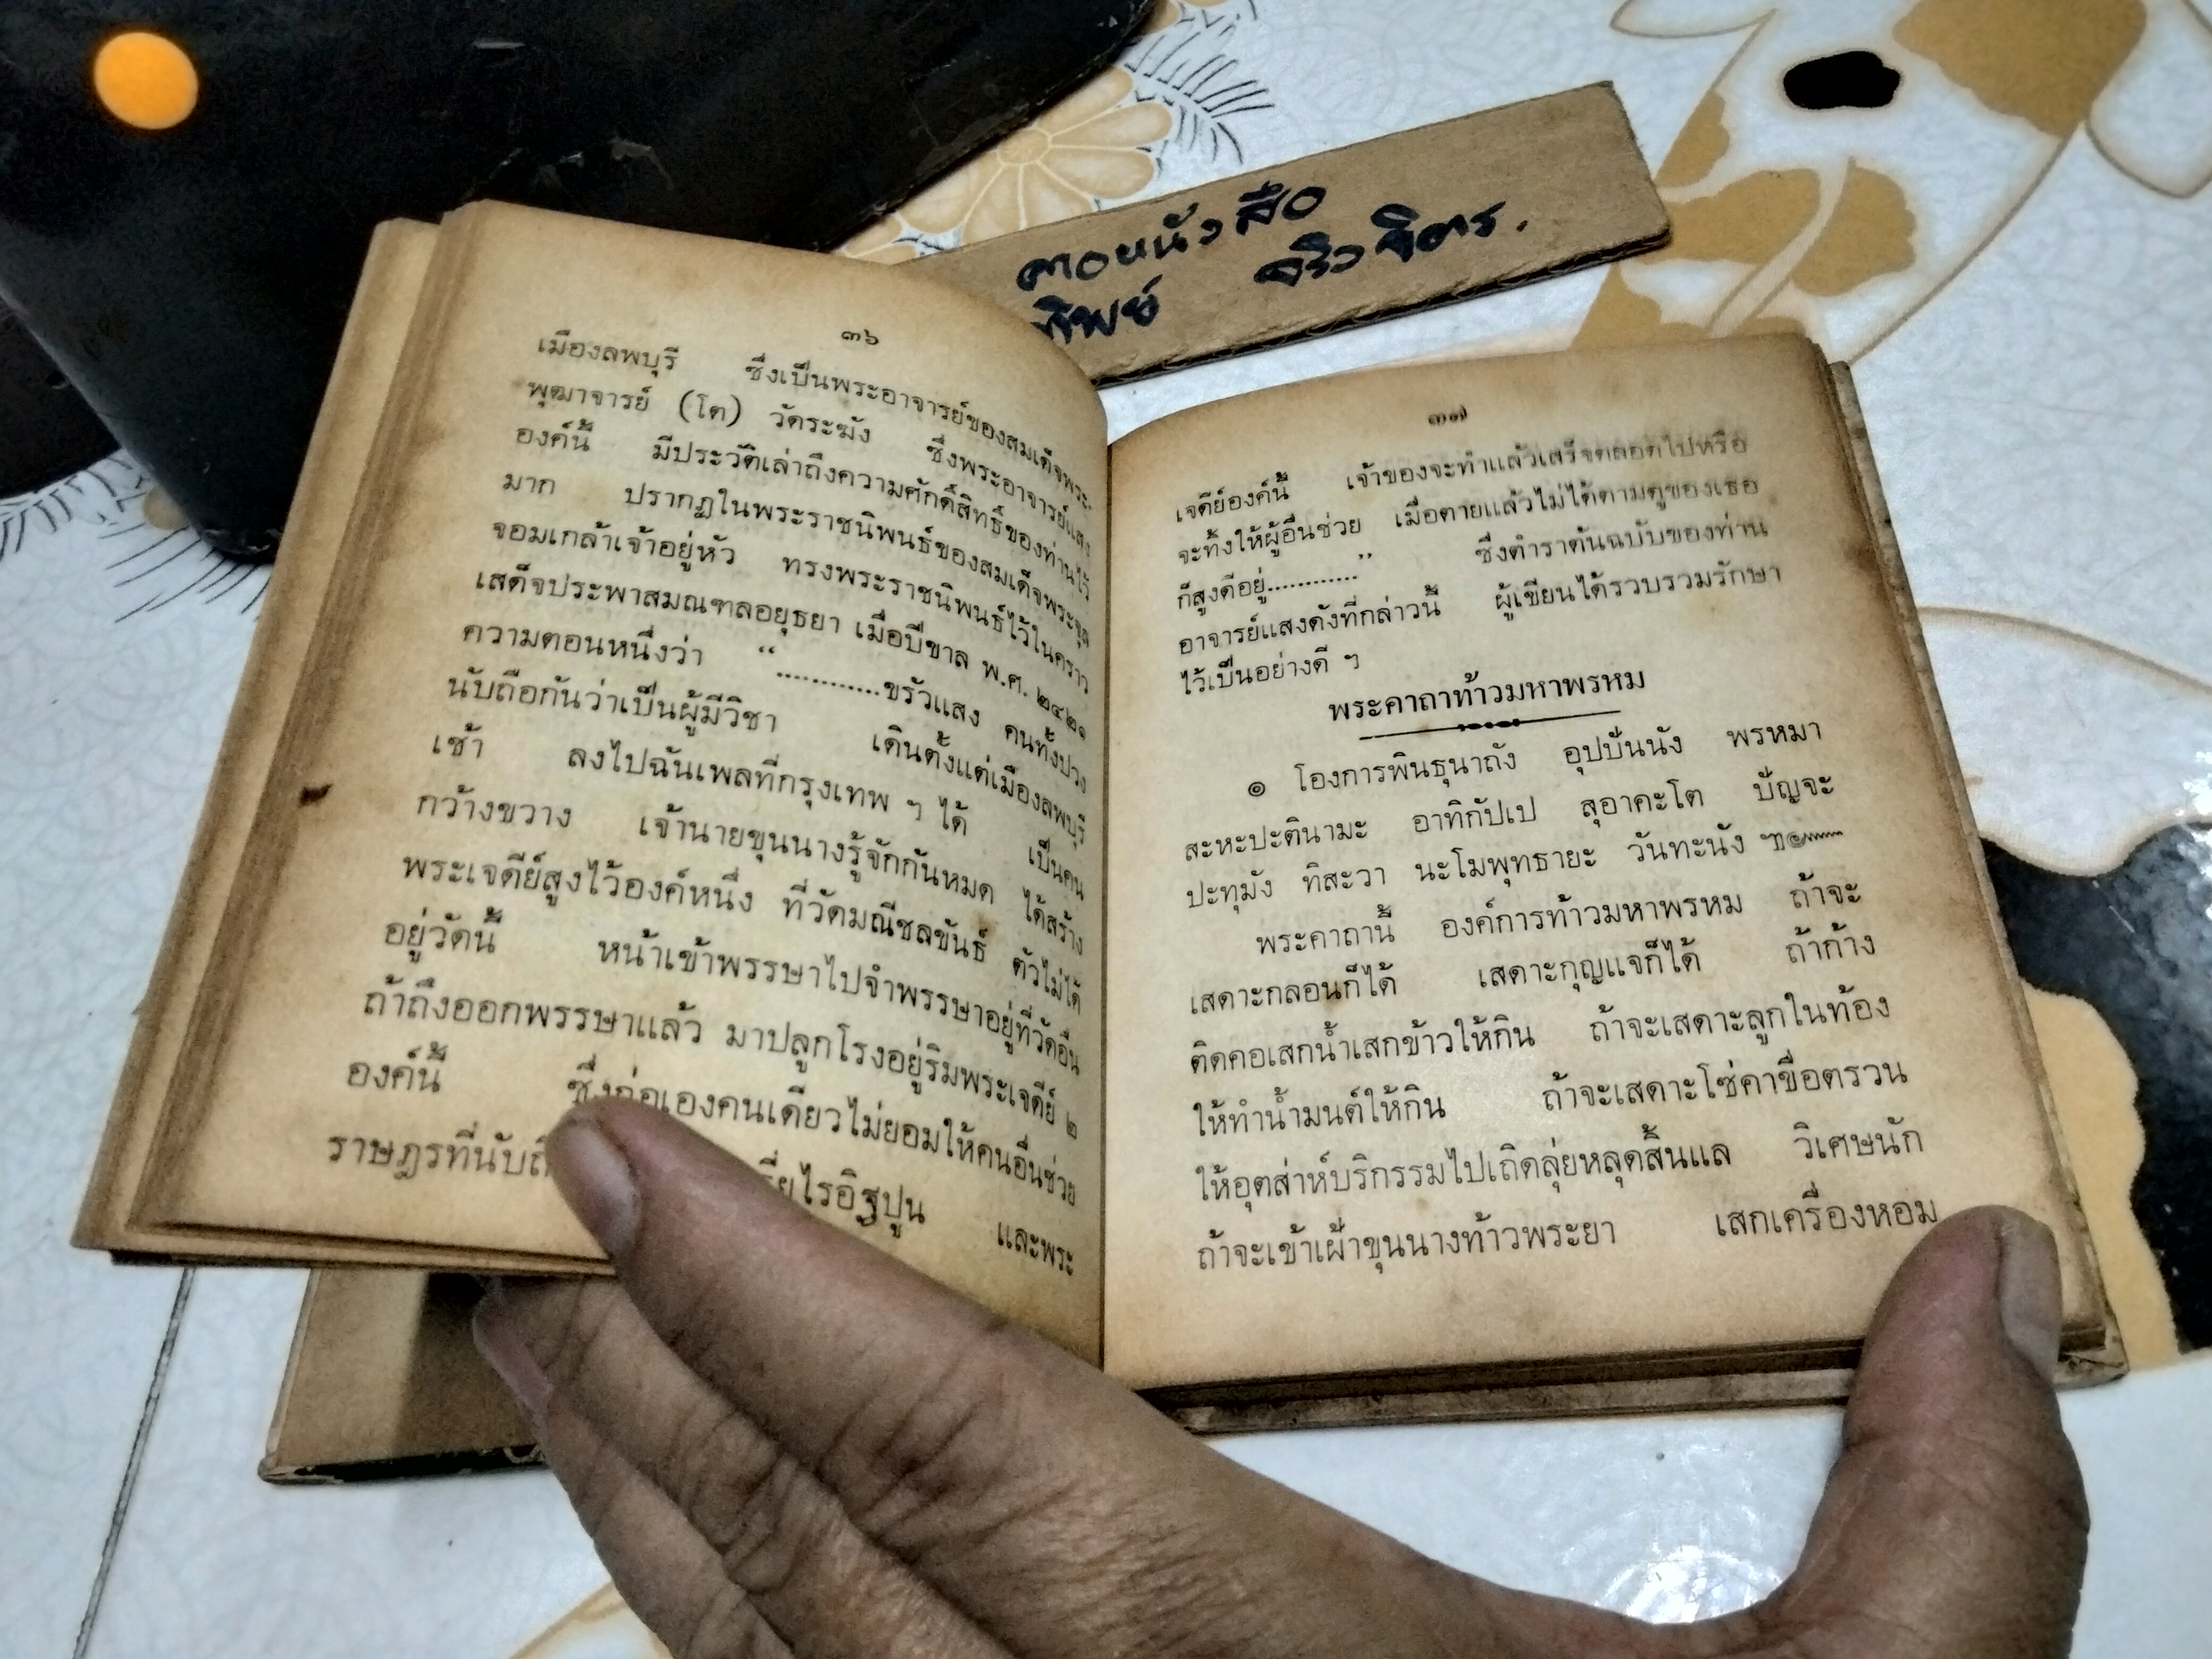 คอยหนังสือ
ทิพย์ จริวจิตร.
๓๖
เมืองลพบุรี ซึ่งเป็นพระอาจารย์ของสมเด็จพระ
พุฒาจารย์ (โต) วัดระฆัง ซึ่งพระอาจารย์แสง
องค์นี้ มีประวัติเล่าถึงความศักดิ์สิทธิ์ของท่านไว้
มาก ปรากฏในพระราชนิพนธ์ของสมเด็จพระจุล
จอมเกล้าเจ้าอยู่หัว ทรงพระราชนิพนธ์ไว้ในคราว
เสด็จประพาสมณฑลอยุธยา เมื่อปีขาล พ.ศ. ๒๔๒๑
ความตอนหนึ่งว่า “............ขรัวแสง คนทั้งปวง
นับถือกันว่าเป็นผู้มีวิชา เดินตั้งแต่เมืองลพบุรี
เช้า ลงไปฉันเพลที่กรุงเทพ ฯ ได้ เป็นคน
กว้างขวาง เจ้านายขุนนางรู้จักกันหมด ได้สร้าง
พระเจดีย์สูงไว้องค์หนึ่ง ที่วัดมณีชลขันธ์ ตัวไม่ได้
อยู่วัดนี้ หน้าเข้าพรรษาไปจำพรรษาอยู่ที่วัดอื่น
ถ้าถึงออกพรรษาแล้ว มาปลูกโรงอยู่ริมพระเจดีย์ ๒
องค์นี้ ซึ่งก่อเองคนเดียวไม่ยอมให้คนอื่นช่วย
ราษฎรที่นับถื รี่ยไรอิฐปูน และพระ
๓๗
เจดีย์องค์นี้ เจ้าของจะทำแล้วเสร็จตลอดไปหรือ
จะทิ้งให้ผู้อื่นช่วย เมื่อตายแล้วไม่ได้ตามดูของเธอ
ก็สูงดีอยู่............” ซึ่งตำราต้นฉบับของท่าน
อาจารย์แสงดังที่กล่าวนี้ ผู้เขียนได้รวบรวมรักษา
ไว้เป็นอย่างดี ฯ
พระคาถาท้าวมหาพรหม
๑ โองการพินธุนาถัง อุปปันนัง พรหมา
สะหะปะตินามะ อาทิกัปเป สุอาคะโต ปัญจะ
ปะทุมัง ทิสะวา นะโมพุทธายะ วันทะนัง ฯ๛
พระคาถานี้ องค์การท้าวมหาพรหม ถ้าจะ
เสดาะกลอนก็ได้ เสดาะกุญแจก็ได้ ถ้าก้าง
ติดคอเสกน้ำเสกข้าวให้กิน ถ้าจะเสดาะลูกในท้อง
ให้ทำน้ำมนต์ให้กิน ถ้าจะเสดาะโซ่คาขื่อตรวน
ให้อุตส่าห์บริกรรมไปเถิดลุ่ยหลุดสิ้นแล วิเศษนัก
ถ้าจะเข้าเฝ้าขุนนางท้าวพระยา เสกเครื่องหอม